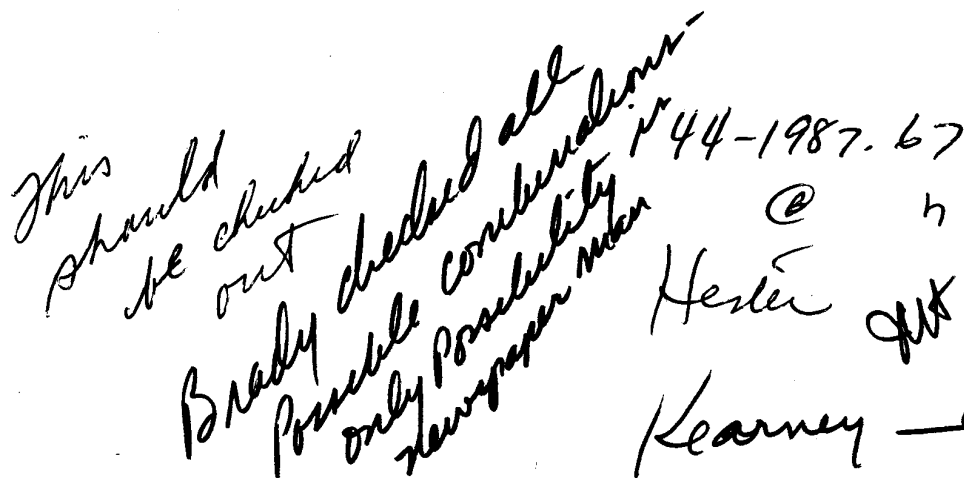 This
should
be checked
out
Brady checked all
Possible combinations -
only Possibility is
newspaper man
44-1987.67
@ "
Hester
Kearney —